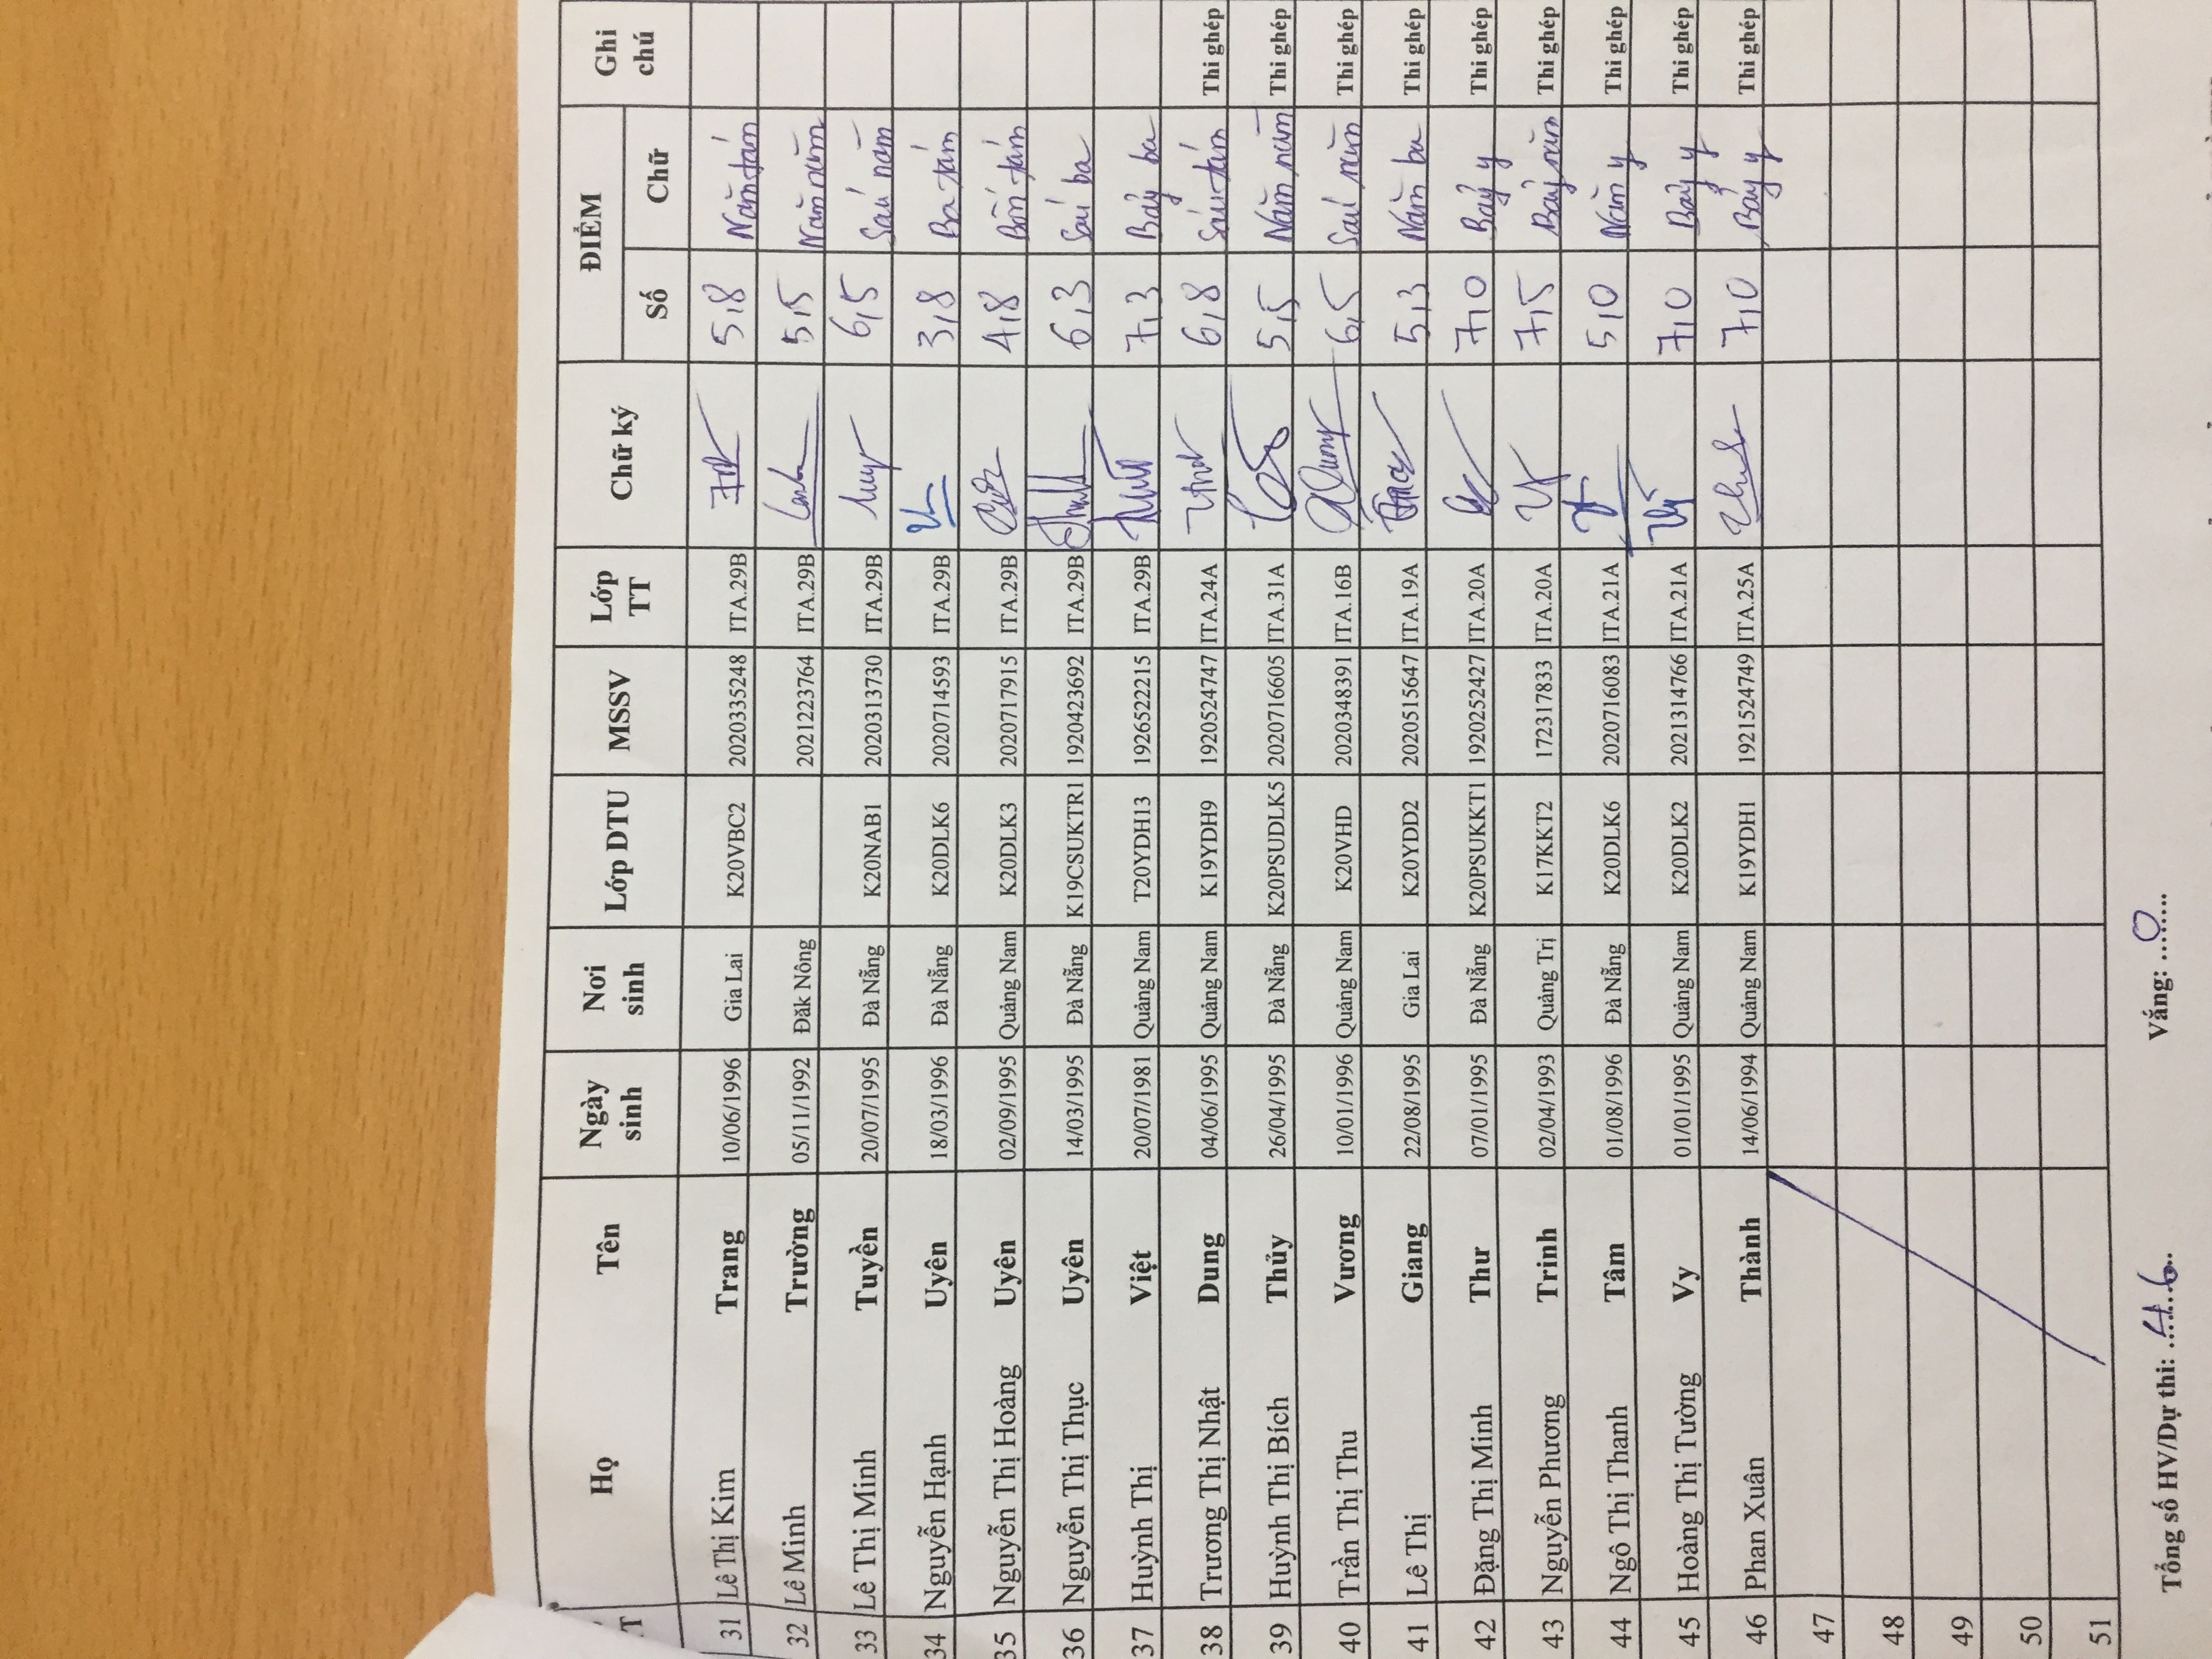 T Họ Tên Ngày sinh Nơi sinh Lớp DTU MSSV Lớp TT Chữ ký ĐIỂM Ghi chú
Số Chữ
31 Lê Thị Kim Trang 10/06/1996 Gia Lai K20VBC2 2020335248 ITA.29B 5,8 Năm tám
32 Lê Minh Trường 05/11/1992 Đăk Nông 2021223764 ITA.29B 5,5 Năm năm
33 Lê Thị Minh Tuyền 20/07/1995 Đà Nẵng K20NAB1 2020313730 ITA.29B 6,5 Sáu năm
34 Nguyễn Hạnh Uyên 18/03/1996 Đà Nẵng K20DLK6 2020714593 ITA.29B 3,8 Ba tám
35 Nguyễn Thị Hoàng Uyên 02/09/1995 Quảng Nam K20DLK3 2020717915 ITA.29B 4,8 Bốn tám
36 Nguyễn Thị Thục Uyên 14/03/1995 Đà Nẵng K19CSUKTR1 1920423692 ITA.29B 6,3 Sáu ba
37 Huỳnh Thị Việt 20/07/1981 Quảng Nam T20YDH13 1926522215 ITA.29B 7,3 Bảy ba
38 Trương Thị Nhật Dung 04/06/1995 Quảng Nam K19YDH9 1920524747 ITA.24A 6,8 Sáu tám Thi ghép
39 Huỳnh Thị Bích Thủy 26/04/1995 Đà Nẵng K20PSUDLK5 2020716605 ITA.31A 5,5 Năm năm Thi ghép
40 Trần Thị Thu Vương 10/01/1996 Quảng Nam K20VHD 2020348391 ITA.16B 6,5 Sáu năm Thi ghép
41 Lê Thị Giang 22/08/1995 Gia Lai K20YDD2 2020515647 ITA.19A 5,3 Năm ba Thi ghép
42 Đặng Thị Minh Thư 07/01/1995 Đà Nẵng K20PSUKKT1 1920252427 ITA.20A 7,0 Bảy y Thi ghép
43 Nguyễn Phương Trinh 02/04/1993 Quảng Trị K17KKT2 172317833 ITA.20A 7,5 Bảy năm Thi ghép
44 Ngô Thị Thanh Tâm 01/08/1996 Đà Nẵng K20DLK6 2020716083 ITA.21A 5,0 Năm y Thi ghép
45 Hoàng Thị Tường Vy 01/01/1995 Quảng Nam K20DLK2 2021314766 ITA.21A 7,0 Bảy y Thi ghép
46 Phan Xuân Thành 14/06/1994 Quảng Nam K19YDH1 1921524749 ITA.25A 7,0 Bảy y Thi ghép
47
48
49
50
51
Tổng số HV/Dự thi: ....46.. Vắng: ...0....